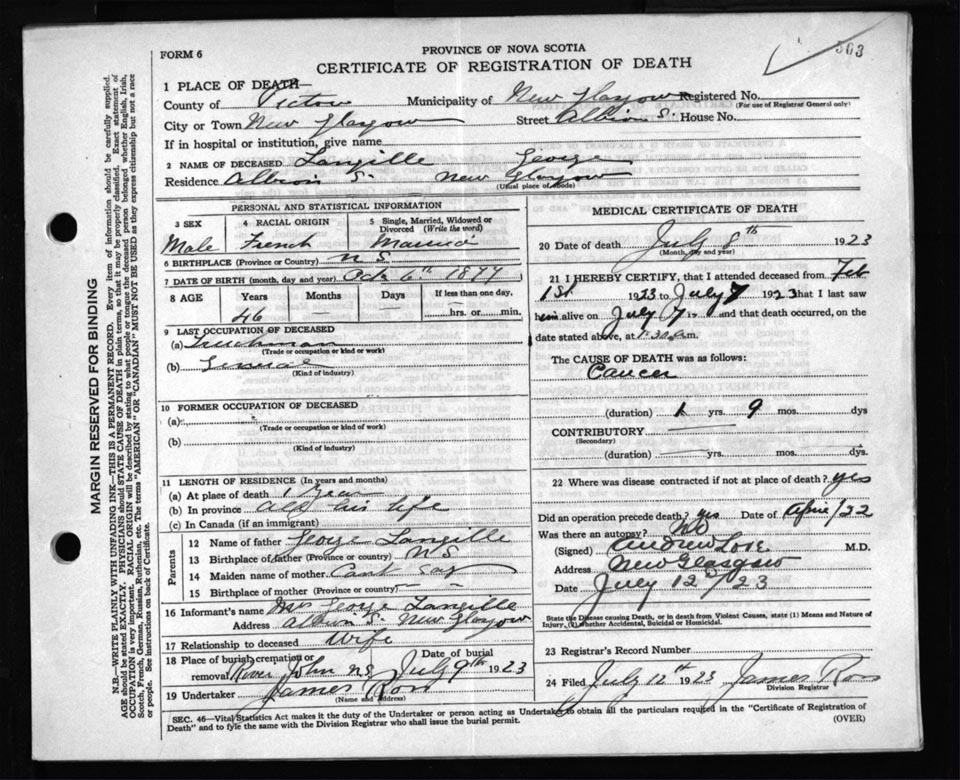 563
FORM 6
PROVINCE OF NOVA SCOTIA
CERTIFICATE OF REGISTRATION OF DEATH
MARGIN RESERVED FOR BINDING
N.B.—WRITE PLAINLY WITH UNFADING INK—THIS IS A PERMANENT RECORD. Every item of information should be carefully supplied.
AGE should be stated EXACTLY. PHYSICIANS should STATE CAUSE OF DEATH in plain terms, so that it may be properly classified. Exact statement of
OCCUPATION is very important. RACIAL ORIGIN will be described by stating to what people or tongue the deceased person belonged whether English, Irish,
Scotch, French, German, Russian, Ruthenian, etc. The terms "AMERICAN" OR "CANADIAN" MUST NOT BE USED as they express citizenship but not a race
or people. See instructions on back of Certificate.
1 PLACE OF DEATH—
County of Pictou Municipality of New Glasgow Registered No.
(For use of Registrar General only)
City or Town New Glasgow Street Albion S. House No.
If in hospital or institution, give name
2 NAME OF DECEASED Langille George
Residence Albion S. New Glasgow
(Usual place of abode)
PERSONAL AND STATISTICAL INFORMATION
3 SEX 4 RACIAL ORIGIN 5 Single, Married, Widowed or Divorced (Write the word)
Male French Married
6 BIRTHPLACE (Province or Country) N S
7 DATE OF BIRTH (month, day and year) Oct 6th 1877
8 AGE Years Months Days If less than one day.
46 — — hrs. or min.
9 LAST OCCUPATION OF DECEASED
(a)
(Trade or occupation or kind or work)
(b) General
(Kind of industry)
10 FORMER OCCUPATION OF DECEASED
(a)
(Trade or occupation or kind of work)
(b)
(Kind of Industry)
11 LENGTH OF RESIDENCE (In years and months)
(a) At place of death 1 Year
(b) In province all his life
(c) In Canada (if an immigrant)
Parents
12 Name of father George Langille
13 Birthplace of father (Province or country) N S
14 Maiden name of mother Cant say
15 Birthplace of mother (Province or country) — —
16 Informant's name Mrs George Langille
Address Albion S. New Glasgow
17 Relationship to deceased Wife
18 Place of burial, cremation or removal River John N S Date of burial July 9th 1923
19 Undertaker James Ross
(Name and Address)
MEDICAL CERTIFICATE OF DEATH
20 Date of death July 8th 1923
(Month, day and year)
21 I HEREBY CERTIFY, that I attended deceased from Feb
1st 1923 to July 7 1923 that I last saw
him alive on July 7 19 and that death occurred, on
date stated above, at a.m.
The CAUSE OF DEATH was as follows:
Cancer
(duration) 1 yrs. 9 mos. dys
CONTRIBUTORY
(Secondary)
(duration) yrs. mos. dys.
22 Where was disease contracted if not at place of death? yes
Did an operation precede death? yes Date of April/22
Was there an autopsy? No
(Signed) Andrew Love M.D.
Address New Glasgow
Date July 12/23
State the Disease causing Death, or in death from Violent Causes, state (1) Means and Nature of
Injury, (2) whether Accidental, Suicidal or Homicidal.
23 Registrar's Record Number
24 Filed July 12th 1923 James Ross
Division Registrar
SEC. 46—Vital Statistics Act makes it the duty of the Undertaker or person acting as Undertaker to obtain all the particulars required in the "Certificate of Registration of
Death" and to fyle the same with the Division Registrar who shall issue the burial permit.
(OVER)